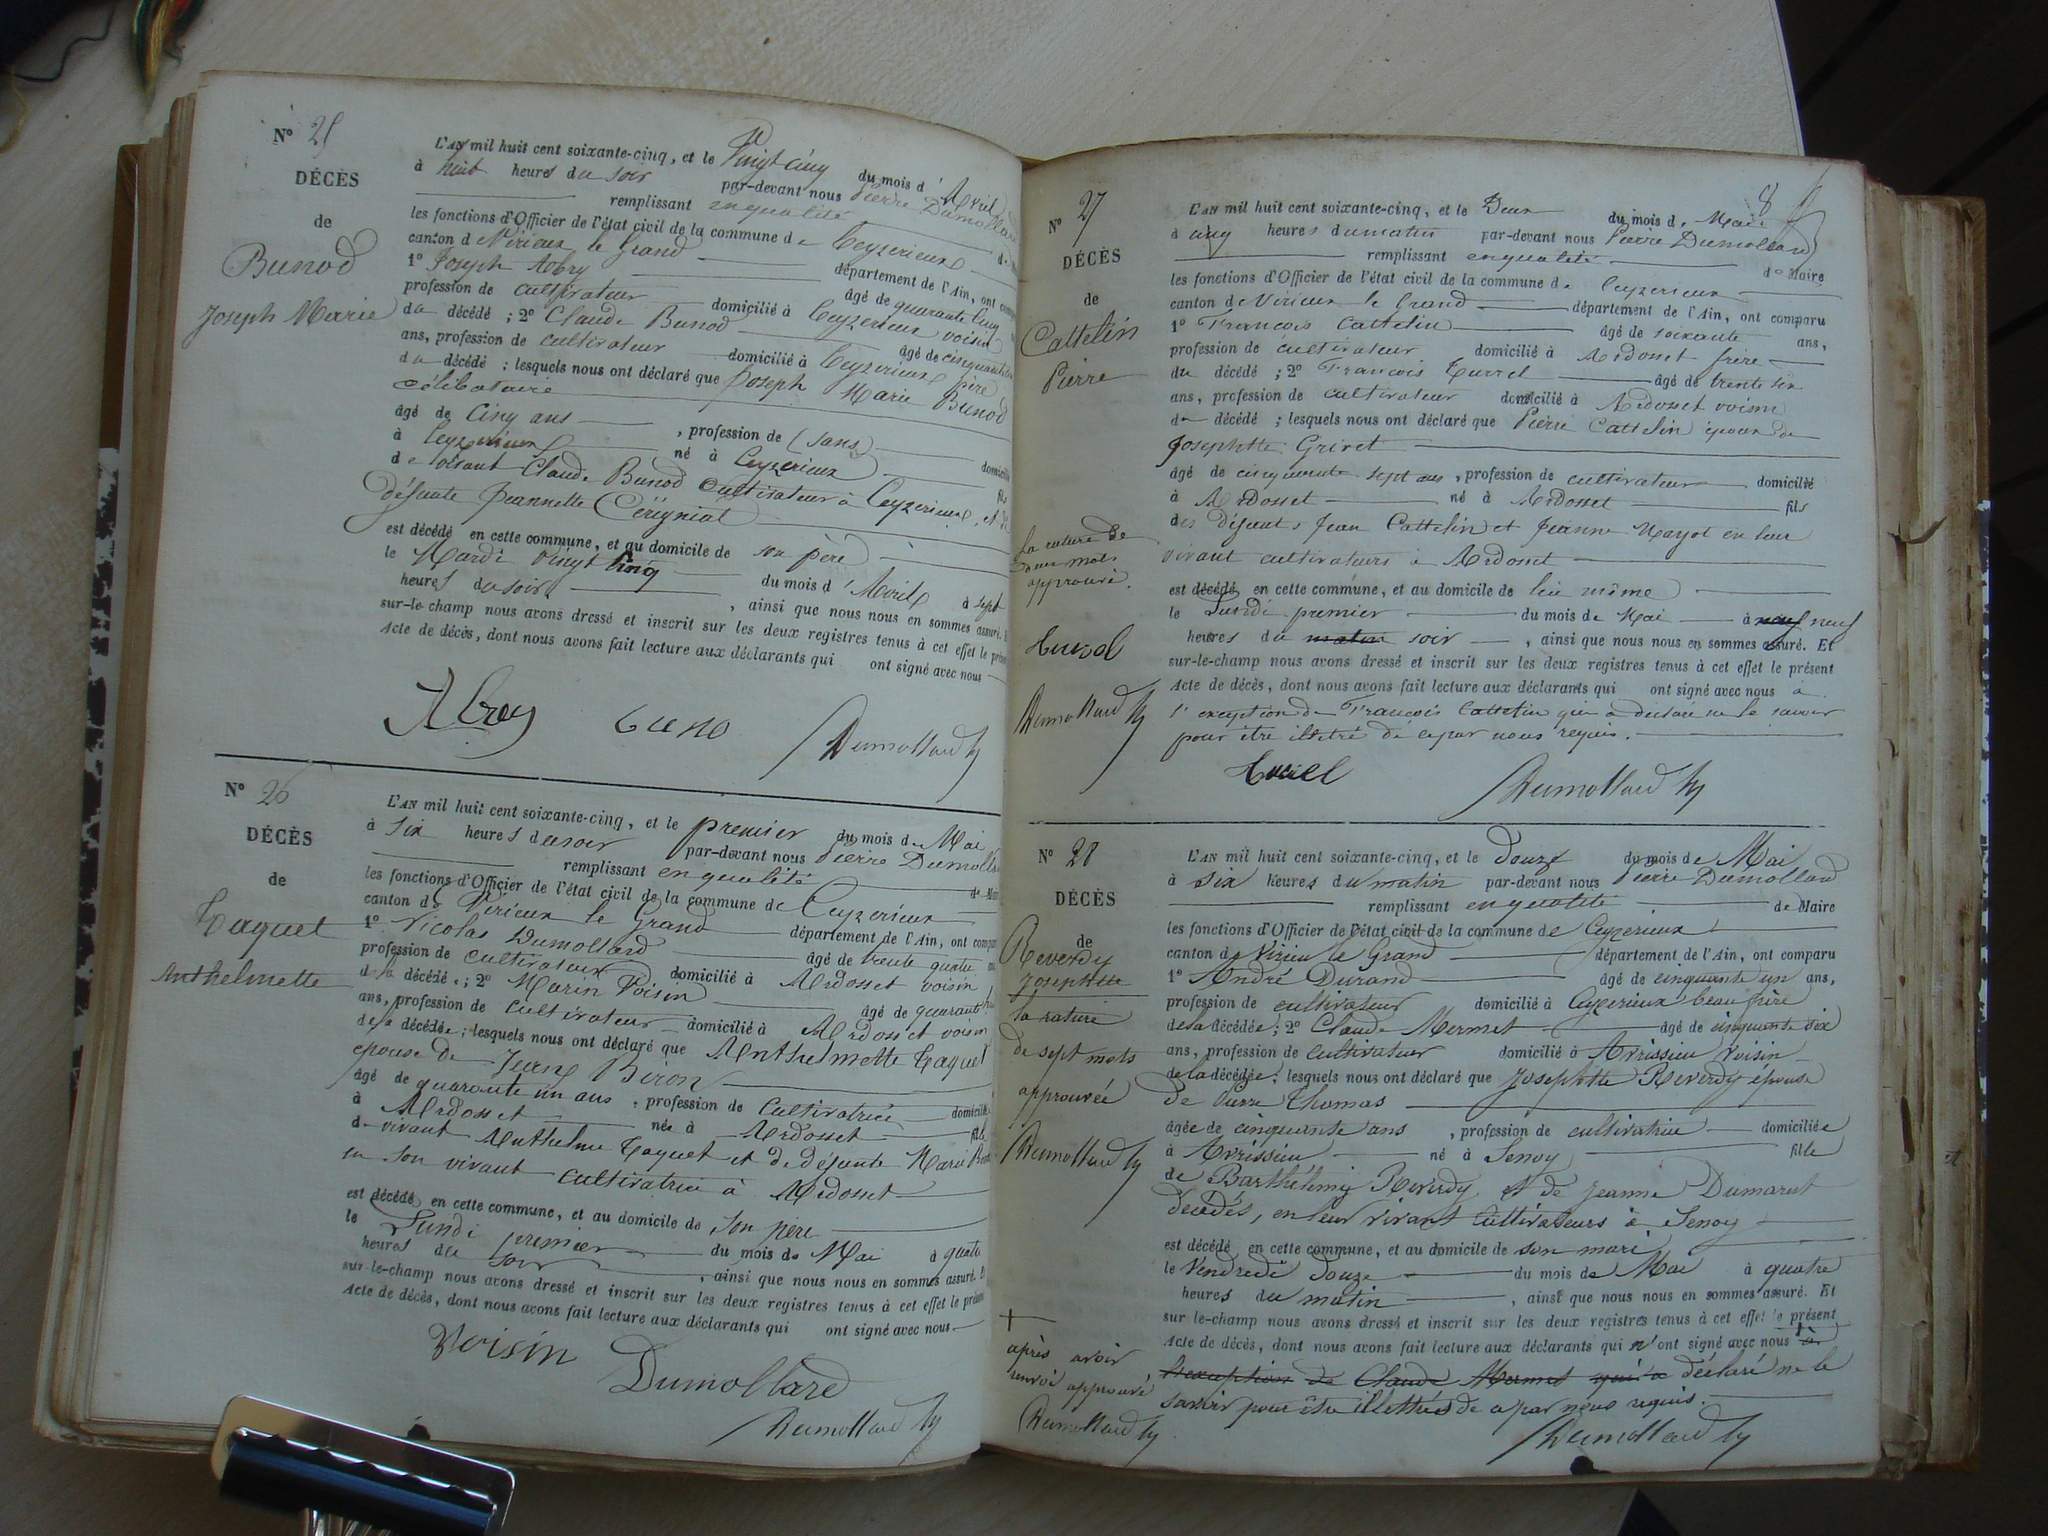 N° 25
DÉCÈS
de
Bunod
Joseph Marie
L'AN mil huit cent soixante-cinq, et le Vingt cinq du mois d'Avril
à huit heures du soir par-devant nous Pierre Dumollard
remplissant en qualité
les fonctions d'Officier de l'état civil de la commune de Ceyzerieux
canton de Virieux le Grand département de l'Ain, ont
1° Joseph Aobry âgé de quarante cinq
profession de cultivateur domicilié à Ceyzerieux voisin
du décédé ; 2° Claude Bunod âgé de
ans, profession de cultivateur domicilié à Ceyzerieux père
du décédé ; lesquels nous ont déclaré que Joseph Marie Bunod
célibataire
âgé de Cinq ans , profession de (sans)
à Ceyzerieux né à Ceyzerieux fils
de vivant Claude Bunod Cultivateur à Ceyzerieux, et de
défunte Jeannette Cérigniat
est décédé en cette commune, et au domicile de son père
le Mardi vingt cinq du mois d'Avril à sept
heures du soir , ainsi que nous nous en sommes assuré.
sur-le-champ nous avons dressé et inscrit sur les deux registres tenus à cet effet le
Acte de décès, dont nous avons fait lecture aux déclarants qui ont signé avec nous
Dumollard
N° 26
DÉCÈS
de
Taquet
Anthelmette
L'AN mil huit cent soixante-cinq, et le premier du mois de Mai
à six heures du soir par-devant nous Pierre
remplissant en qualité de
les fonctions d'Officier de l'état civil de la commune de Ceyzerieux
canton de Virieux le Grand département de l'Ain, ont
1° Nicolas Dumollard âgé de trente quatre
profession de cultivateur domicilié à Ardosset voisin
de la décédée ; 2° Marin Voisin âgé de quarante
ans, profession de cultivateur domicilié à Ardosset voisin
de la décédée ; lesquels nous ont déclaré que Anthelmette Taquet
épouse de Jean Biron
âgé de quarante un ans , profession de Cultivatrice
à Ardosset née à Ardosset fille
de vivant Anthelme Taquet et de défunte Marie
en son vivant cultivatrice à Ardosset
est décédé en cette commune, et au domicile de son père
le Lundi premier du mois de Mai à quatre
heures du soir , ainsi que nous nous en sommes assuré.
sur-le-champ nous avons dressé et inscrit sur les deux registres tenus à cet effet le
Acte de décès, dont nous avons fait lecture aux déclarants qui ont signé avec nous
Voisin
Dumollard
Dumollard
8
N° 27
DÉCÈS
de
Cattelin
Pierre
de
deux mots
approuvé.
Dumollard
L'AN mil huit cent soixante-cinq, et le Deux du mois de Mai
à cinq heures du matin par-devant nous Pierre Dumollard
remplissant en qualité de Maire
les fonctions d'Officier de l'état civil de la commune de Ceyzerieux
canton de Virieux le Grand département de l'Ain, ont comparu
1° François Cattelin âgé de soixante ans,
profession de cultivateur domicilié à Ardosset frère
du décédé ; 2° François âgé de trente six
ans, profession de cultivateur domicilié à Ardosset voisin
du décédé ; lesquels nous ont déclaré que Pierre Cattelin époux de
Josephtte Grivet
âgé de cinquante sept ans , profession de cultivateur domicilié
à Ardosset né à Ardosset fils
des défunts Jean Cattelin et Jeanne Nayot en leur
vivant cultivateurs à Ardosset
est décédé en cette commune, et au domicile de lui même
le Lundi premier du mois de Mai à neuf neuf
heures du matin soir , ainsi que nous nous en sommes assuré. Et
sur-le-champ nous avons dressé et inscrit sur les deux registres tenus à cet effet le présent
Acte de décès, dont nous avons fait lecture aux déclarants qui ont signé avec nous à
l'exception de François Cattelin qui a déclaré ne le savoir
pour être illétré de ce par nous requis.
Dumollard
N° 28
DÉCÈS
de
Reverdy
Josephtte
la rature
de sept mots
approuvée
Dumollard
L'AN mil huit cent soixante-cinq, et le douze du mois de Mai
à six heures du matin par-devant nous Pierre Dumollard
remplissant en qualité de Maire
les fonctions d'Officier de l'état civil de la commune de Ceyzerieux
canton de Virieu le Grand département de l'Ain, ont comparu
1° André Durand âgé de cinquante un ans,
profession de cultivateur domicilié à Ceyzerieux beau frère
de la décédée ; 2° Claude Mermet âgé de cinquante six
ans, profession de cultivateur domicilié à Avrissieu voisin
de la décédée ; lesquels nous ont déclaré que Josephtte Reverdy épouse
de Pierre Thomas
âgée de cinquante ans , profession de cultivatrice domiciliée
à Avrissieu né à Senoy fille
de Barthélemy Reverdy et de Jeanne Dumarut
décédés, en leur vivant Cultivateurs à Senoy
est décédé en cette commune, et au domicile de son mari
le Vendredi douze du mois de Mai à quatre
heures du matin , ainsi que nous nous en sommes assuré. Et
sur-le-champ nous avons dressé et inscrit sur les deux registres tenus à cet effet le présent
Acte de décès, dont nous avons fait lecture aux déclarants qui n'ont signé avec nous à
l'exception de Claude Mermet qui a déclaré ne le
savoir pour être illettrés de ce par nous requis.
+
après avoir
renvoi approuvé
Dumollard
Dumollard